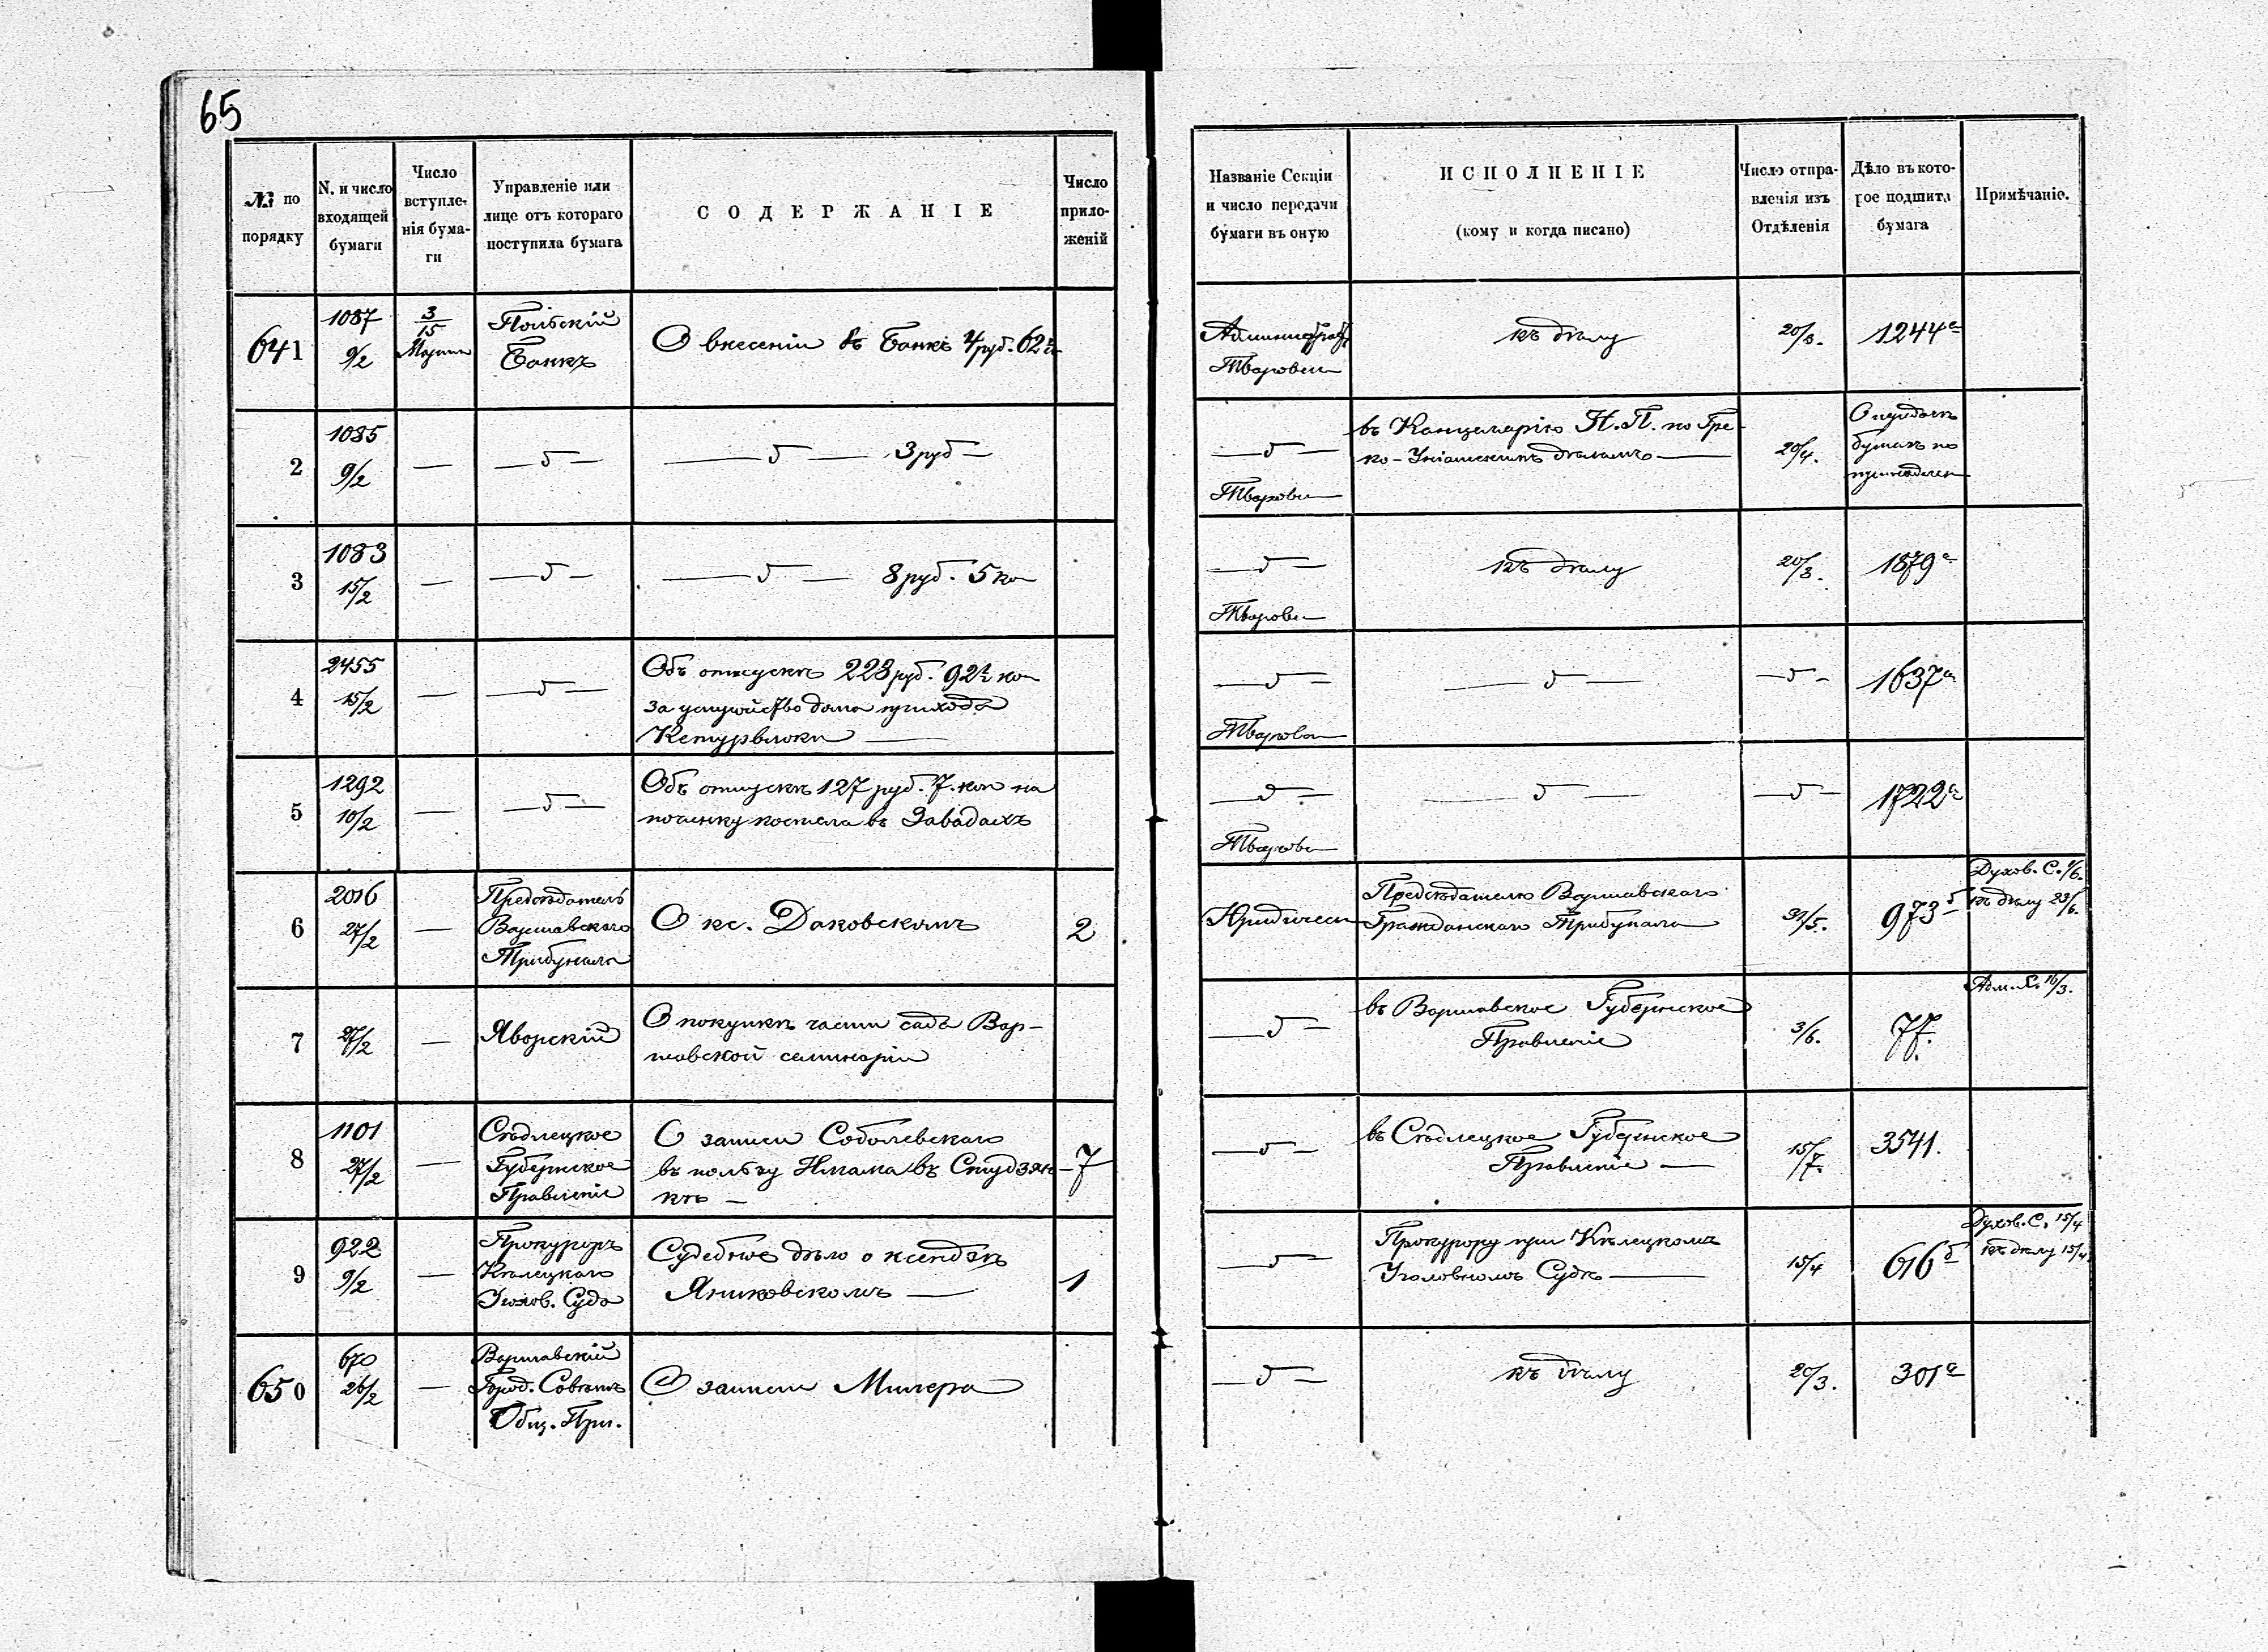 65
№ по порядку
N. и число входящей бумаги
Число вступле-нія бума-ги
Управленіе или лице отъ котораго поступила бумага
СОДЕРЖАНІЕ
Число прило-женій
Названіе Секціи и число передачи бумаги въ оную
ИСПОЛНЕНІЕ (кому и когда писано)
Число отпра-вленія изъ Отдѣленія
Дѣло въ кото-рое подшита бумага
Примѣчаніе.
641
1087
9/2
3/15
Марта
Польскій
Банкъ
О внесеніи въ Банкъ 4 руб. 62½
Тваровск
къ дѣлу
20/3.
1244 а
2
1085
9/2
—
— „ —
— „ — 3 руб —
— „ —
Тваровск
въ Канцелярію Н. П. по Гре-
ко-Уніатскимъ дѣламъ —
20/4.
бумагъ по
3
1083
15/2
—
— „ —
— „ — 8 руб. 5 ко
— „ —
Тваровск
къ дѣлу
20/3.
1879 а
4
2455
15/2
—
— „ —
Объ отпускѣ 223 руб. 92½ ко
за устройство дома прихода
Кетурвлоки —
— „ —
Тваровск
— „ —
— „ —
1637 а
5
1292
10/2
—
— „ —
Объ отпускѣ 127 руб. 7. коп на
починку костела въ Завадахъ
— „ —
Тваровск
— „ —
— „ —
1722 а
6
2016
27/2
—
Предсѣдатель
Варшавскаго
Трибунала
О кс. Даковскомъ
2
Юридическ
Предсѣдателю Варшавскаго
Гражданскаго Трибунала
31/5.
973 б
Духов. С. 1/6.
къ дѣлу 23/6.
7
27/2
—
Яворскій
О покупкѣ части сада Вар-
шавской семинаріи
— „ —
въ Варшавское Губернское
Правленіе
3/6.
77.
Адм. С. 16/3.
8
1101
27/2
—
Сѣдлецкое
Губернское
Правленіе
О записи Соболевскаго
въ пользу Имама въ Студзян-
кѣ —
7
— „ —
въ Сѣдлецкое Губернское
Правленіе —
15/7.
3541.
9
922
9/2
—
Прокуроръ
Кѣлецкаго
Уголов. Суда
Судебное дѣло о ксендзѣ
Яниковскомъ —
1
— „ —
Прокурору при Кѣлецкомъ
Уголовномъ Судѣ —
15/4
616 б
Духов. С. 15/4
къ дѣлу 15/4.
650
670
26/2
—
Варшавскій
Город. Совѣтъ
Общ. При.
О записи Милера
— „ —
къ дѣлу
20/3.
301 а